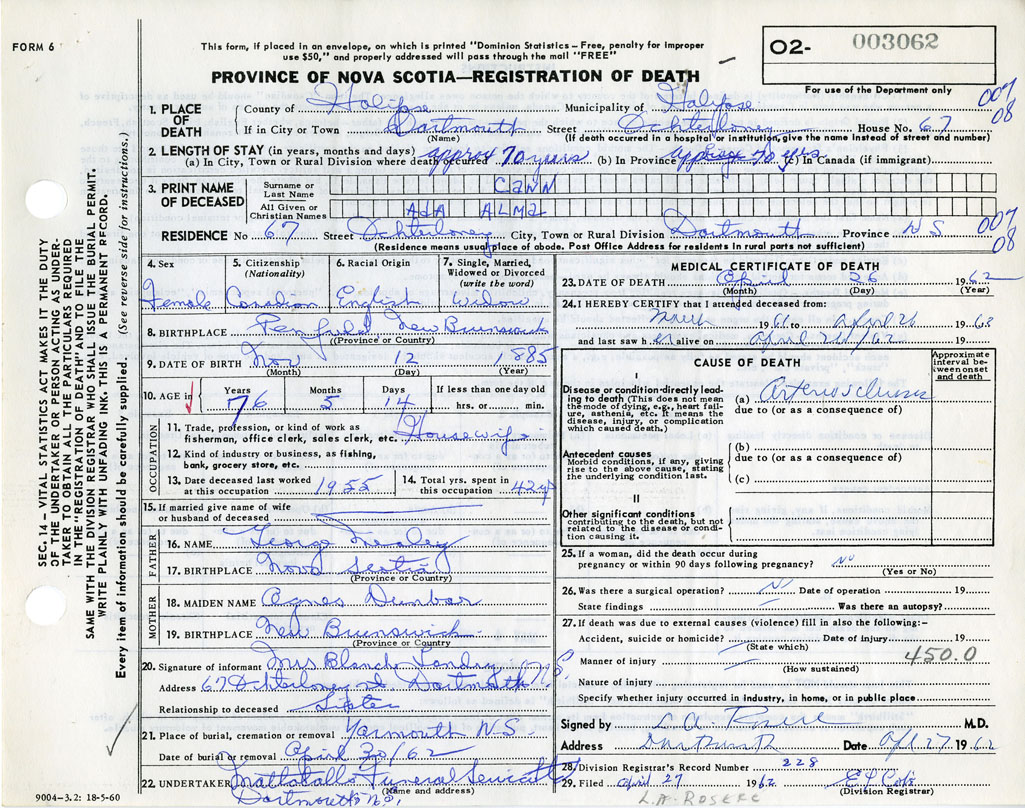 FORM 6
This form, if placed in an envelope, on which is printed "Dominion Statistics – Free, penalty for improper
use $50," and properly addressed will pass through the mail "FREE"
O2- 003062
For use of the Department only
PROVINCE OF NOVA SCOTIA—REGISTRATION OF DEATH
1. PLACE OF DEATH
County of Halifax Municipality of Halifax 007
If in City or Town Dartmouth Street Ochterloney House No. 67 08
(Name) (If death occurred in a hospital or institution, give the name instead of street and number)
2. LENGTH OF STAY (in years, months and days)
(a) In City, Town or Rural Division where death occurred approx 70 years (b) In Province 70 yrs (c) In Canada (if immigrant)
3. PRINT NAME OF DECEASED
Surname or Last Name CANN
All Given or Christian Names ADA ALMA
RESIDENCE No 67 Street Ochterloney City, Town or Rural Division Dartmouth Province NS 007
08
(Residence means usual place of abode. Post Office Address for residents in rural parts not sufficient)
4. Sex Female
5. Citizenship (Nationality) Canadian
6. Racial Origin English
7. Single, Married, Widowed or Divorced (write the word) Widow
8. BIRTHPLACE Penfield New Brunswick
(Province or Country)
9. DATE OF BIRTH Nov 12 1885
(Month) (Day) (Year)
10. AGE in Years 76 Months 5 Days 14 If less than one day old hrs. or min.
OCCUPATION
11. Trade, profession, or kind of work as fisherman, office clerk, sales clerk, etc. Housewife
12. Kind of industry or business, as fishing, bank, grocery store, etc.
13. Date deceased last worked at this occupation 1955
14. Total yrs. spent in this occupation 42 yrs
15. If married give name of wife or husband of deceased
FATHER
16. NAME George
17. BIRTHPLACE Nova Scotia
(Province or Country)
MOTHER
18. MAIDEN NAME Agnes Dunbar
19. BIRTHPLACE New Brunswick
(Province or Country)
20. Signature of informant Mrs Blanche Landry
Address 67 Ochterloney st Dartmouth N.S.
Relationship to deceased Sister
21. Place of burial, cremation or removal Yarmouth N.S.
Date of burial or removal April 30/62
22. UNDERTAKER Mattatall's Funeral Service
(Name and address)
Dartmouth N.S.
9004–3.2: 18-5-60
MEDICAL CERTIFICATE OF DEATH
23. DATE OF DEATH April 26 1962
(Month) (Day) (Year)
24. I HEREBY CERTIFY that I attended deceased from:
March 1961 to April 26 1962
and last saw her alive on April 26/62 19
CAUSE OF DEATH
Approximate interval between onset and death
I
Disease or condition directly leading to death (This does not mean the mode of dying, e.g., heart failure, asthenia, etc. It means the disease, injury, or complication which caused death.)
(a) Arteriosclerosis
due to (or as a consequence of)
Antecedent causes
Morbid conditions, if any, giving rise to the above cause, stating the underlying condition last.
(b)
due to (or as a consequence of)
(c)
II
Other significant conditions
contributing to the death, but not related to the disease or condition causing it.
25. If a woman, did the death occur during
pregnancy or within 90 days following pregnancy? No
(Yes or No)
26. Was there a surgical operation? No Date of operation 19
State findings Was there an autopsy?
27. If death was due to external causes (violence) fill in also the following:–
Accident, suicide or homicide? Date of injury 19
(State which)
Manner of injury 450.0
(How sustained)
Nature of injury
Specify whether injury occurred in industry, in home, or in public place
Signed by L A Rosere M.D.
Address Dartmouth Date Apl 27 1962
28. Division Registrar's Record Number 228
29. Filed April 27 1962
(Division Registrar)
SEC. 14 – VITAL STATISTICS ACT MAKES IT THE DUTY
OF THE UNDERTAKER OR PERSON ACTING AS UNDERTAKER
TO OBTAIN ALL THE PARTICULARS REQUIRED
IN THE "REGISTRATION OF DEATH" AND TO FILE THE
SAME WITH THE DIVISION REGISTRAR WHO SHALL ISSUE THE BURIAL PERMIT.
WRITE PLAINLY WITH UNFADING INK. THIS IS A PERMANENT RECORD.
Every item of information should be carefully supplied (See reverse side for instructions.)